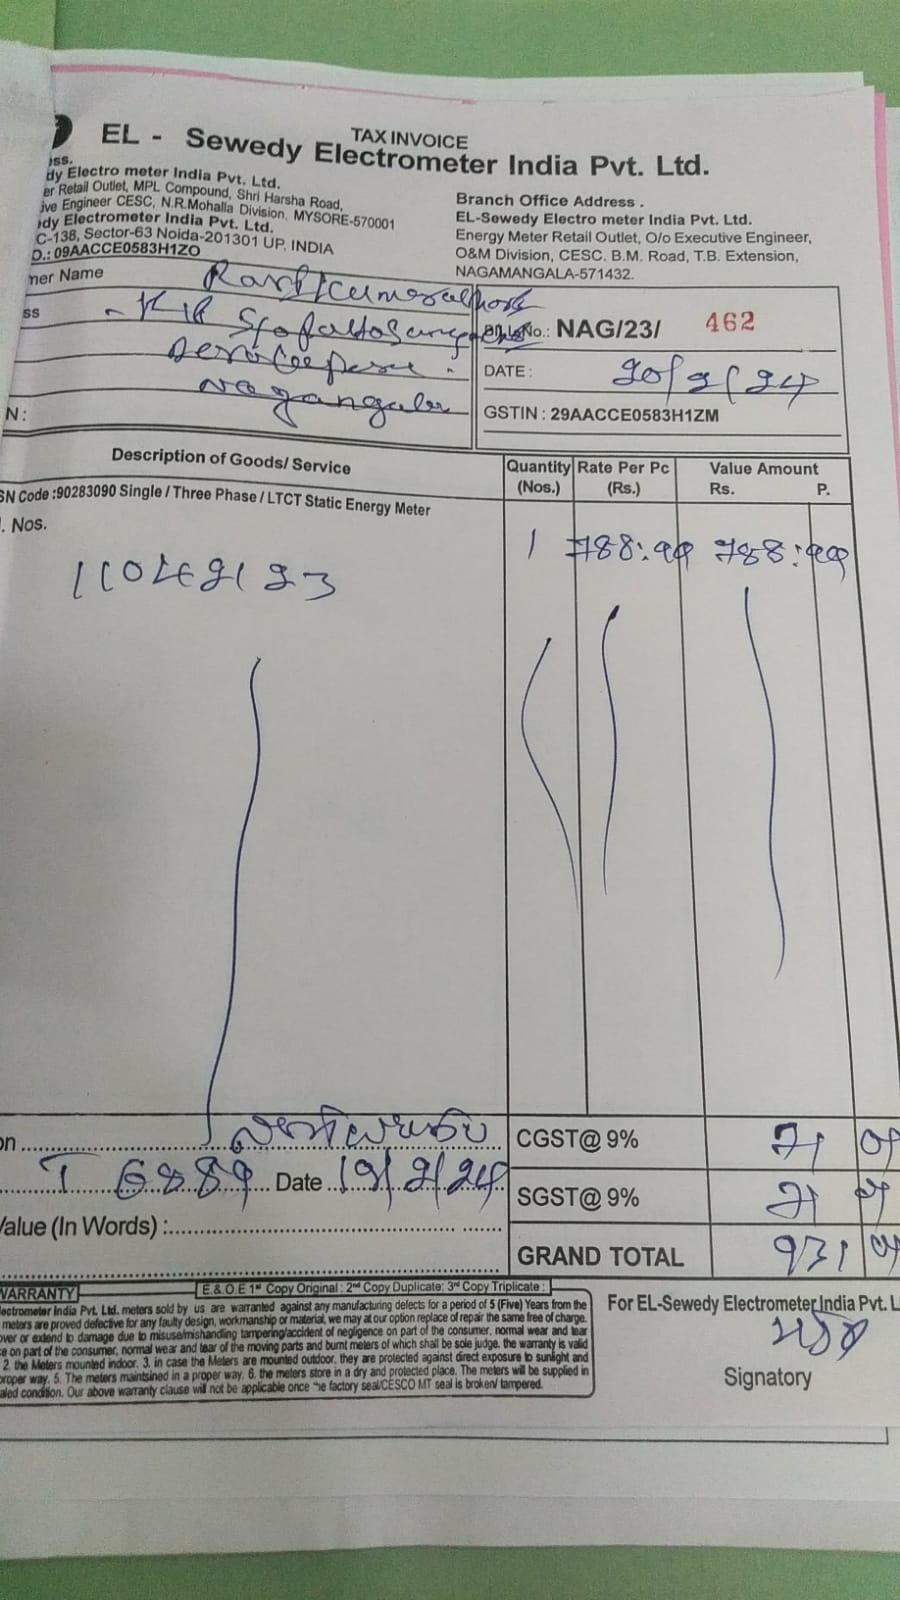 TAX INVOICE
EL - Sewedy Electrometer India Pvt. Ltd.
ess.
dy Electro meter India Pvt. Ltd.
er Retail Outlet, MPL Compound, Shri Harsha Road,
ive Engineer CESC, N.R.Mohalla Division, MYSORE-570001
edy Electrometer India Pvt. Ltd.
C-138, Sector-63 Noida-201301 UP, INDIA
D.: 09AACCE0583H1ZO
Branch Office Address .
EL-Sewedy Electro meter India Pvt. Ltd.
Energy Meter Retail Outlet, O/o Executive Engineer,
O&M Division, CESC. B.M. Road, T.B. Extension,
NAGAMANGALA-571432.
mer Name
ss
N:
No.: NAG/23/ 462
DATE: 20/2/24
GSTIN : 29AACCE0583H1ZM
Description of Goods/ Service
Quantity (Nos.) Rate Per Pc (Rs.) Value Amount Rs. P.
SN Code :90283090 Single / Three Phase / LTCT Static Energy Meter
. Nos.
1 788:99 788:99
on
CGST@ 9% 71 01
T 6889 Date 19/2/24
SGST@ 9% 71 01
Value (In Words) :
GRAND TOTAL 931 01
WARRANTY
E.& O.E 1st Copy Original : 2nd Copy Duplicate: 3rd Copy Triplicate :
lectrometer India Pvt. Ltd. meters sold by us are warranted against any manufacturing defects for a period of 5 (Five) Years from the
meters are proved defective for any faulty design, workmanship or material, we may at our option replace of repair the same free of charge.
over or extend to damage due to misuse/mishandling tampering/accident of negligence on part of the consumer, normal wear and tear
ce on part of the consumer, normal wear and tear of the moving parts and burnt meters of which shall be sole judge. the warranty is valid
2. the Meters mounted indoor. 3. in case the Meters are mounted outdoor. they are protected against direct exposure to sunlight and
proper way. 5. The meters maintsined in a proper way. 6. the meters store in a dry and protected place. The meters will be supplied in
aled condition. Our above warranty clause will not be applicable once the factory seal/CESCO MT seal is broken/ tampered.
For EL-Sewedy Electrometer India Pvt. L
Signatory